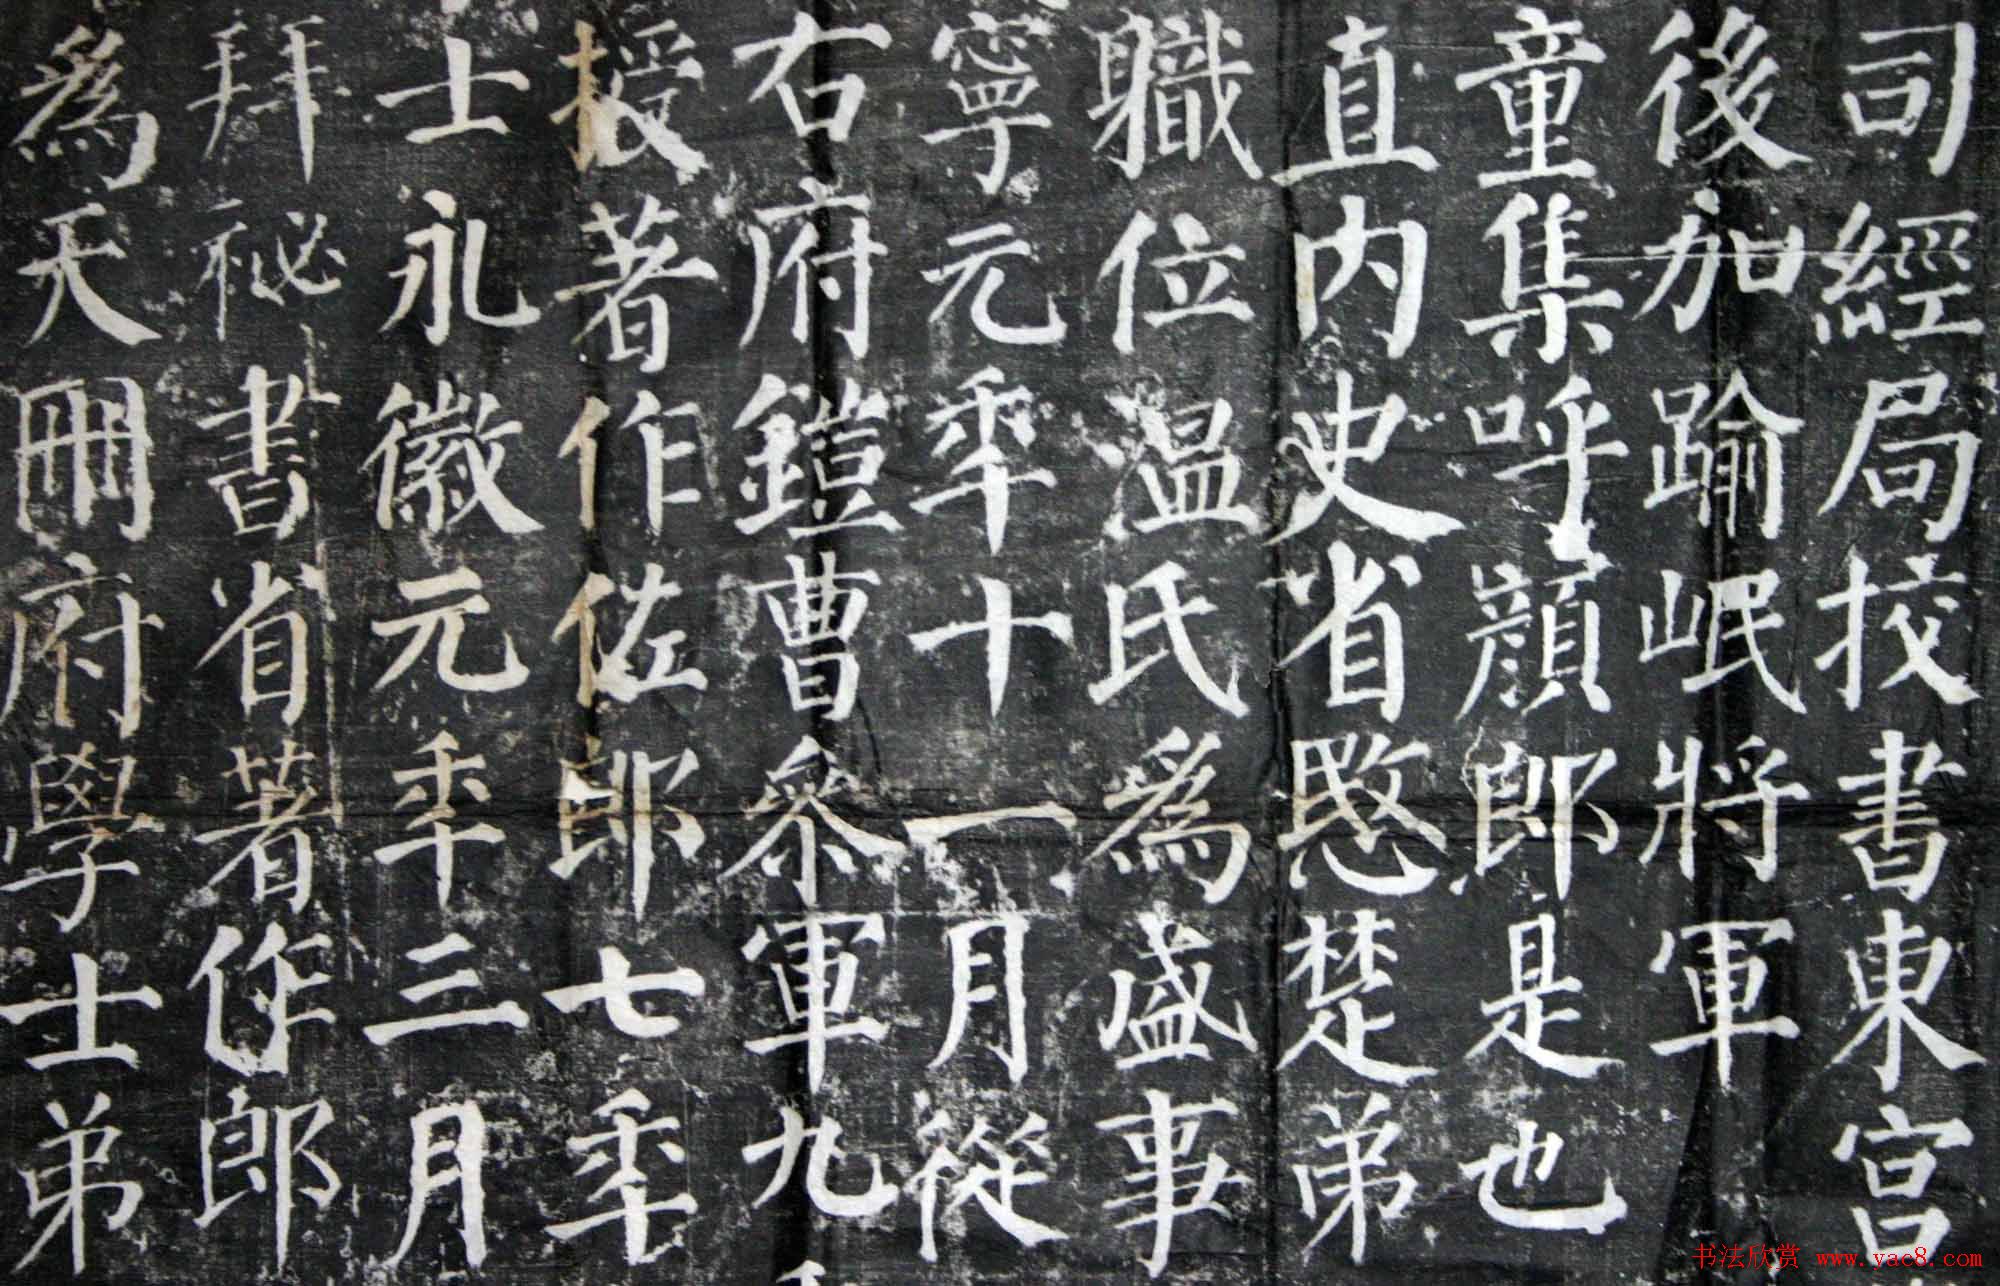 司經局挍書東宮
後加踰岷將軍
童集呼顏郎是也
直內史省愍楚弟
職位溫氏為盛事
寧元年十一月從
右府鎧曹參軍九
授著作佐郎七年
士永徽元年三月
拜祕書省著作郎
為天冊府學士弟
书法欣赏 www.yac8.com